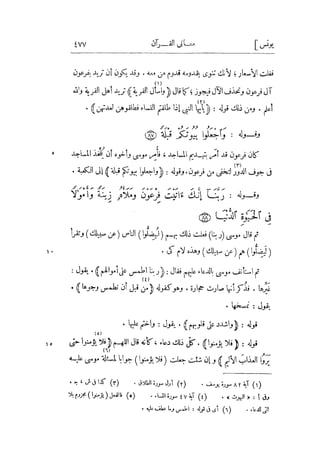 يونس ] معانى القـرآن ٤٧٧
فغلت الأسعار ؛ لأنك تنوى بقدومه قدوم من معه . وقد يكون أن تريد بفرعون
آل فرعون وتحذف الآل فيجوز ؛ كما قال ( واسأل القرية (١) ) تريد أهل القرية والله
أعلم . ومن ذلك قوله : ( يأيها النبي إذا طلقتم النساء فطلقوهن لعدتهن (٢) ) .
وقـــوله : وَٱجۡعَلُواْ بُيُوتَكُمۡ قِبۡلَةٗ ﴿٨٧﴾
كان فرعون قد أمر بتهديم المساجد ، فأُمر موسى وأخوه أن يُتَّخذ المساجد
فى جوف الدور (٣) لتخفى من فرعون . وقوله : ( واجعلوا بيوتكم قبلة ) إلى الكعبة .
وقـــوله : رَبَّنَآ إِنَّكَ ءَاتَيۡتَ فِرۡعَوۡنَ وَمَلَأَهُۥ زِينَةٗ وَأَمۡوَٰلٗا
فِى ٱلۡحَيَوٰةِ ٱلدُّنۡيَا ﴿٨٨﴾
ثم قال موسى ( ربنا ) فعلت ذلك بهم ( ليُضِلوا ) الناس ( عن سبيلك ) وتقرأ
( لِيَضلوا ) هم ( عن سبيلك ) وهذه لام كى . ١٠
ثم استأنف موسى بالدعاء عليهم فقال : ( ربنا اطمس على أموالهم ) . يقول :
غيِّرها . فذُكر أنها صارت حجارة . وهو كقوله ( من قبل أن نطمس وجوها (٤) ) .
يقول : نمسخها .
قوله : ( واشدد على قلوبهم ) . يقول : واختم عليها .
قوله : ( فلا يؤمنوا ) . كلّ ذلك دعاء ، كأنه قال اللهم ( فلا يؤمنوا (٥) حتى ١٥
يَرَوُا العذاب الأليم ) وإن شئت جعلت ( فلا يؤمنوا (٦) ) جوابا لمسئلة موسى عليه
(١) آية ٨٢ سورة يوسف . (٢) أول سورة الطلاق . (٣) كذا فى ش ، ج .
وفى ا : « البيوت » . (٤) آية ٤٧ سورة النساء . (٥) فالفعل ( يؤمنوا ) مجزوم بلا
التى للدعاء . (٦) أى فى قوله : اطمس وما عطف عليه .